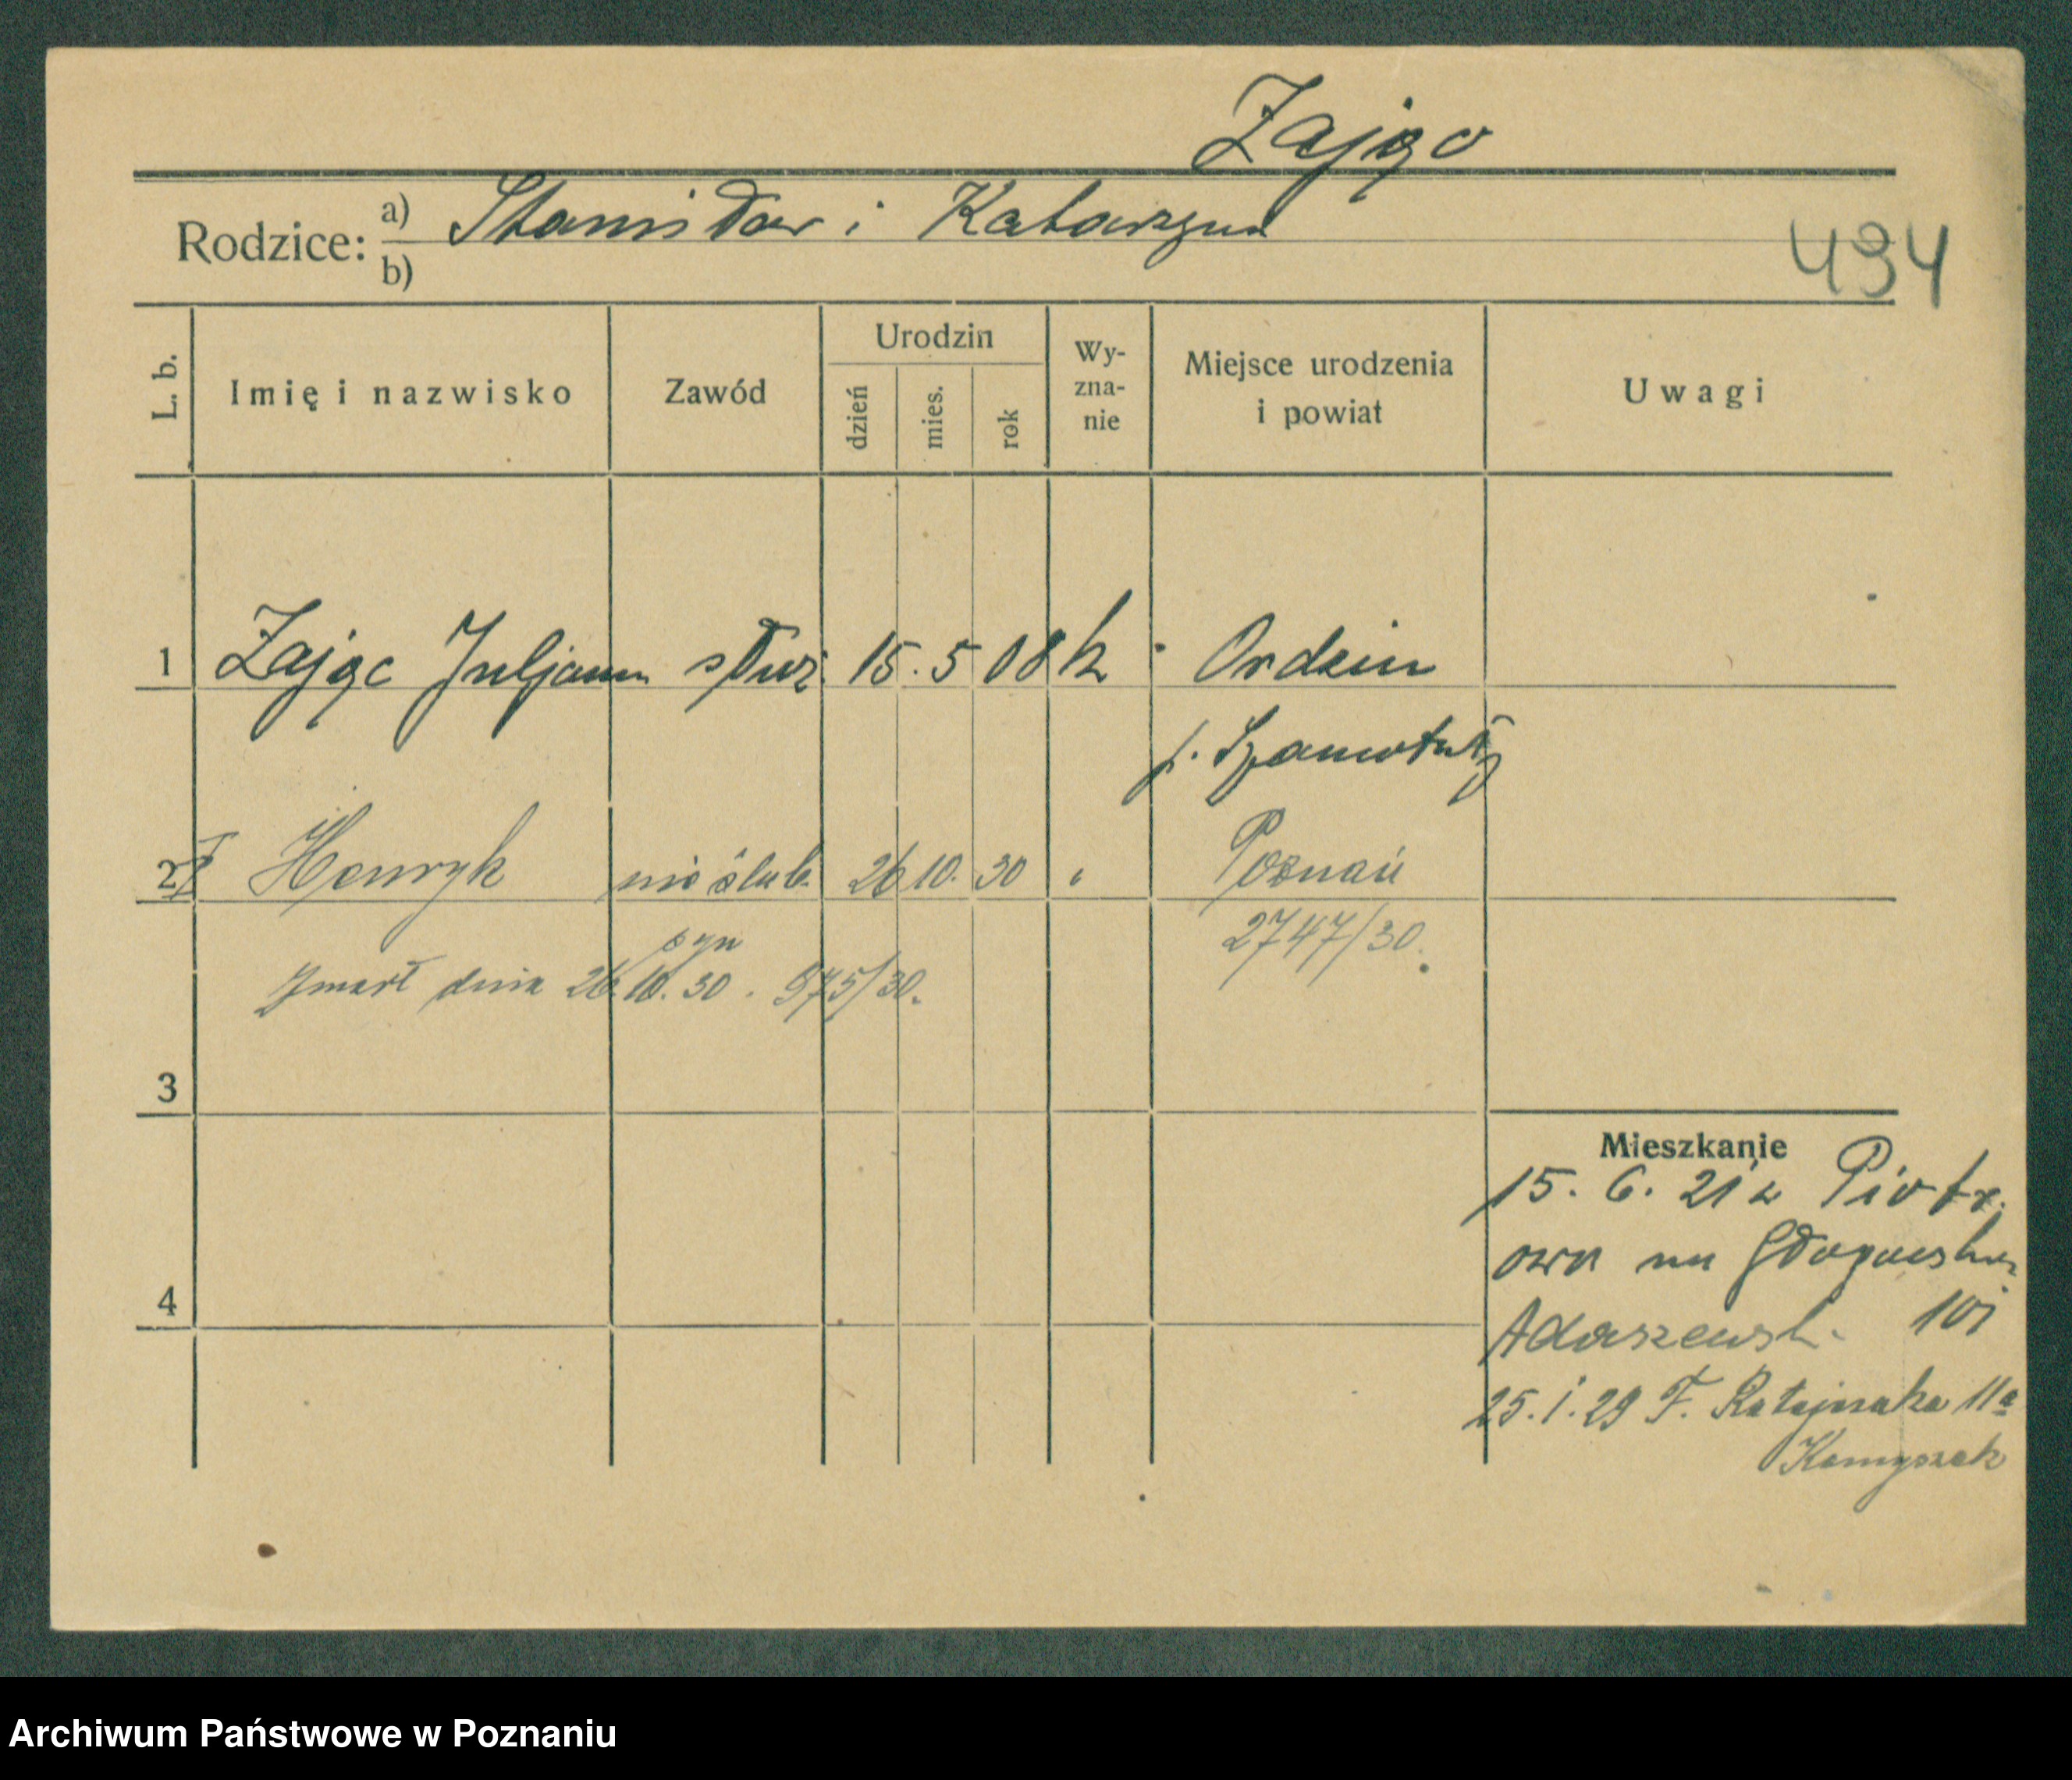 Zając
Rodzice: a) Stanisław i Katarzyna
b)
494
L. b. Imię i nazwisko Zawód Urodzin dzień mies. rok Wyznanie Miejsce urodzenia i powiat Uwagi
1 Zając Juljanna służ. 15. 5 08 k Ordzin
p. Szamotuły
2 Henryk nieślub. 26 10. 30 " Poznań
syn 2747/30.
Zmarł dnia 26.10.30. 975/30.
3
Mieszkanie
15. 6. 21 z Piotr
owa na Głogowska
4
Adaszewsk. 101
25.1.29 F. Ratajczaka 11a
Archiwum Państwowe w Poznaniu